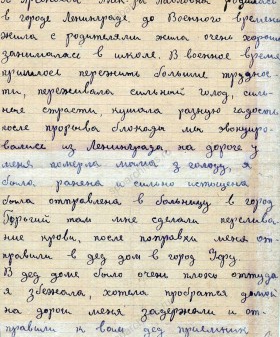 в городе Ленинграде до Военного времени
жила с родителями жила очень хорошо
занималась в школе. В военное время
пришлось пережить большие трудно
сти, переживала сильный голод, силь-
ные страсти, кушала разную гадость
после прорыва блокады мы эвакуиро-
вались из Ленинграда, на дороге у
меня померла мама з голоду, я
была ранена и сильно истощена
была отправлена в больницу в город
там мне сделали перелива-
ние крови, после поправки меня от-
правили в дед дом в город Уфу.
В дед доме было очень плохо оттуда
я збежала, хотела пробратся домой
на дороги меня задержали и от-
правили к вам дед приемник